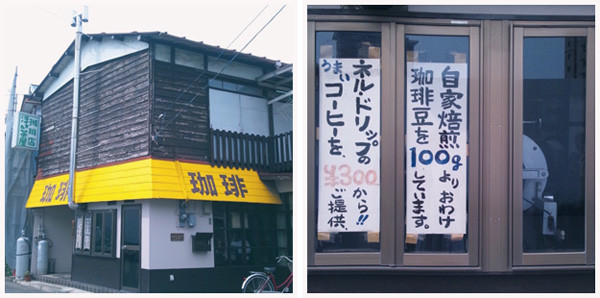 珈琲店
珈琲
珈琲
ネル・ドリップの
うまいコーヒーを、
¥300から!!
ご提供、
自家焙煎
珈琲豆を
100gよりおわけ
しています。